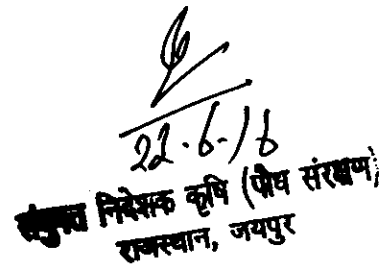 22.6.16
संयुक्त निदेशक कृषि (पौध संरक्षण)
राजस्थान, जयपुर